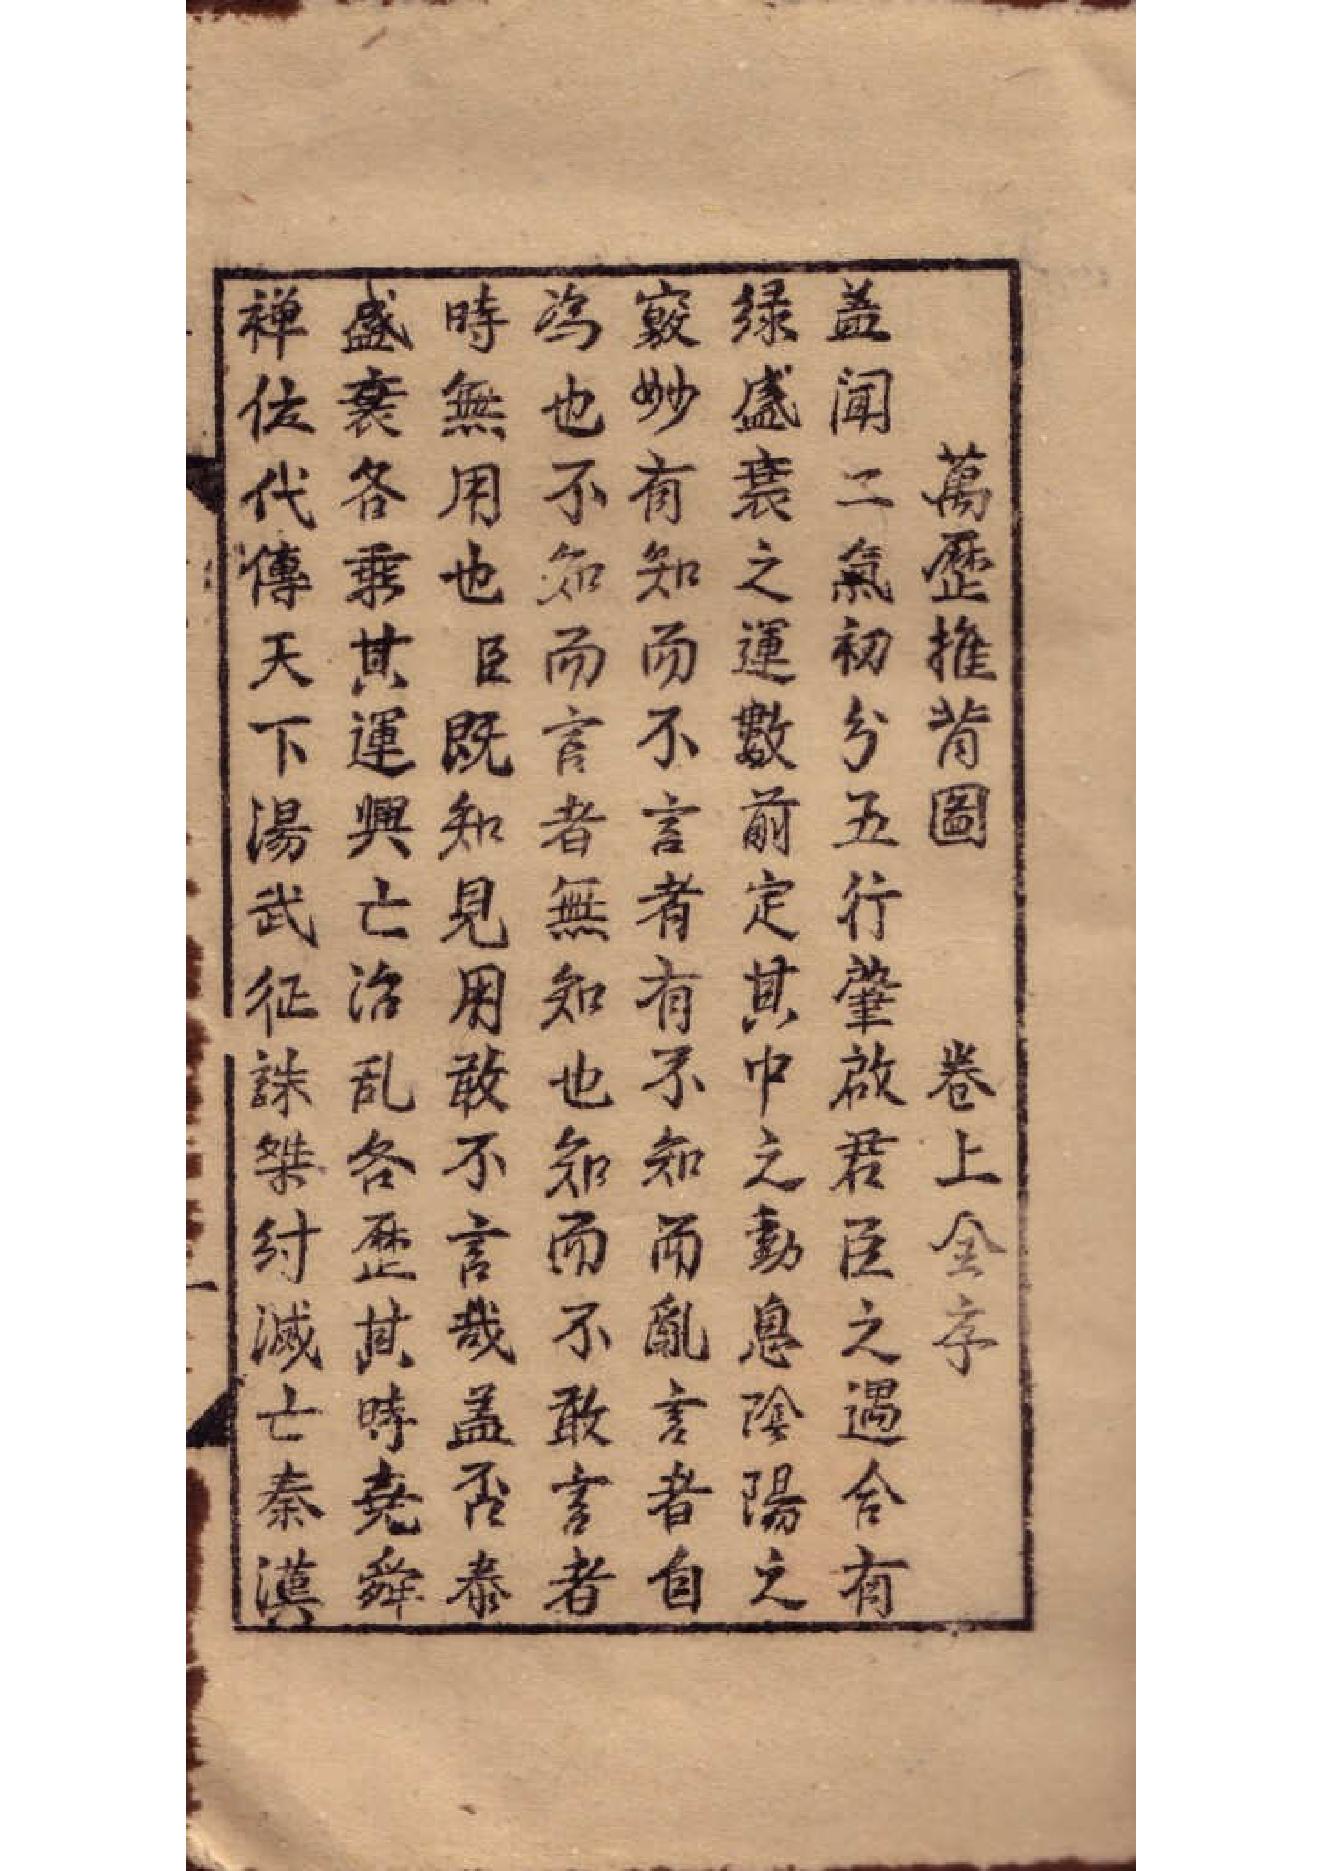 萬歷推背圖　卷上全序
盖闻二氣初分五行肇啟君臣之遇合有
緑盛衰之運數前定其中之動息陰陽之
竅妙有知而不言者有不知而亂言者自
為也不知而言者無知也知而不敢言者
時無用也臣既知見用敢不言哉盖否泰
盛衰各乘其運興亡治乱各歷其時堯舜
禅位代傳天下湯武征誅桀紂滅亡秦漢